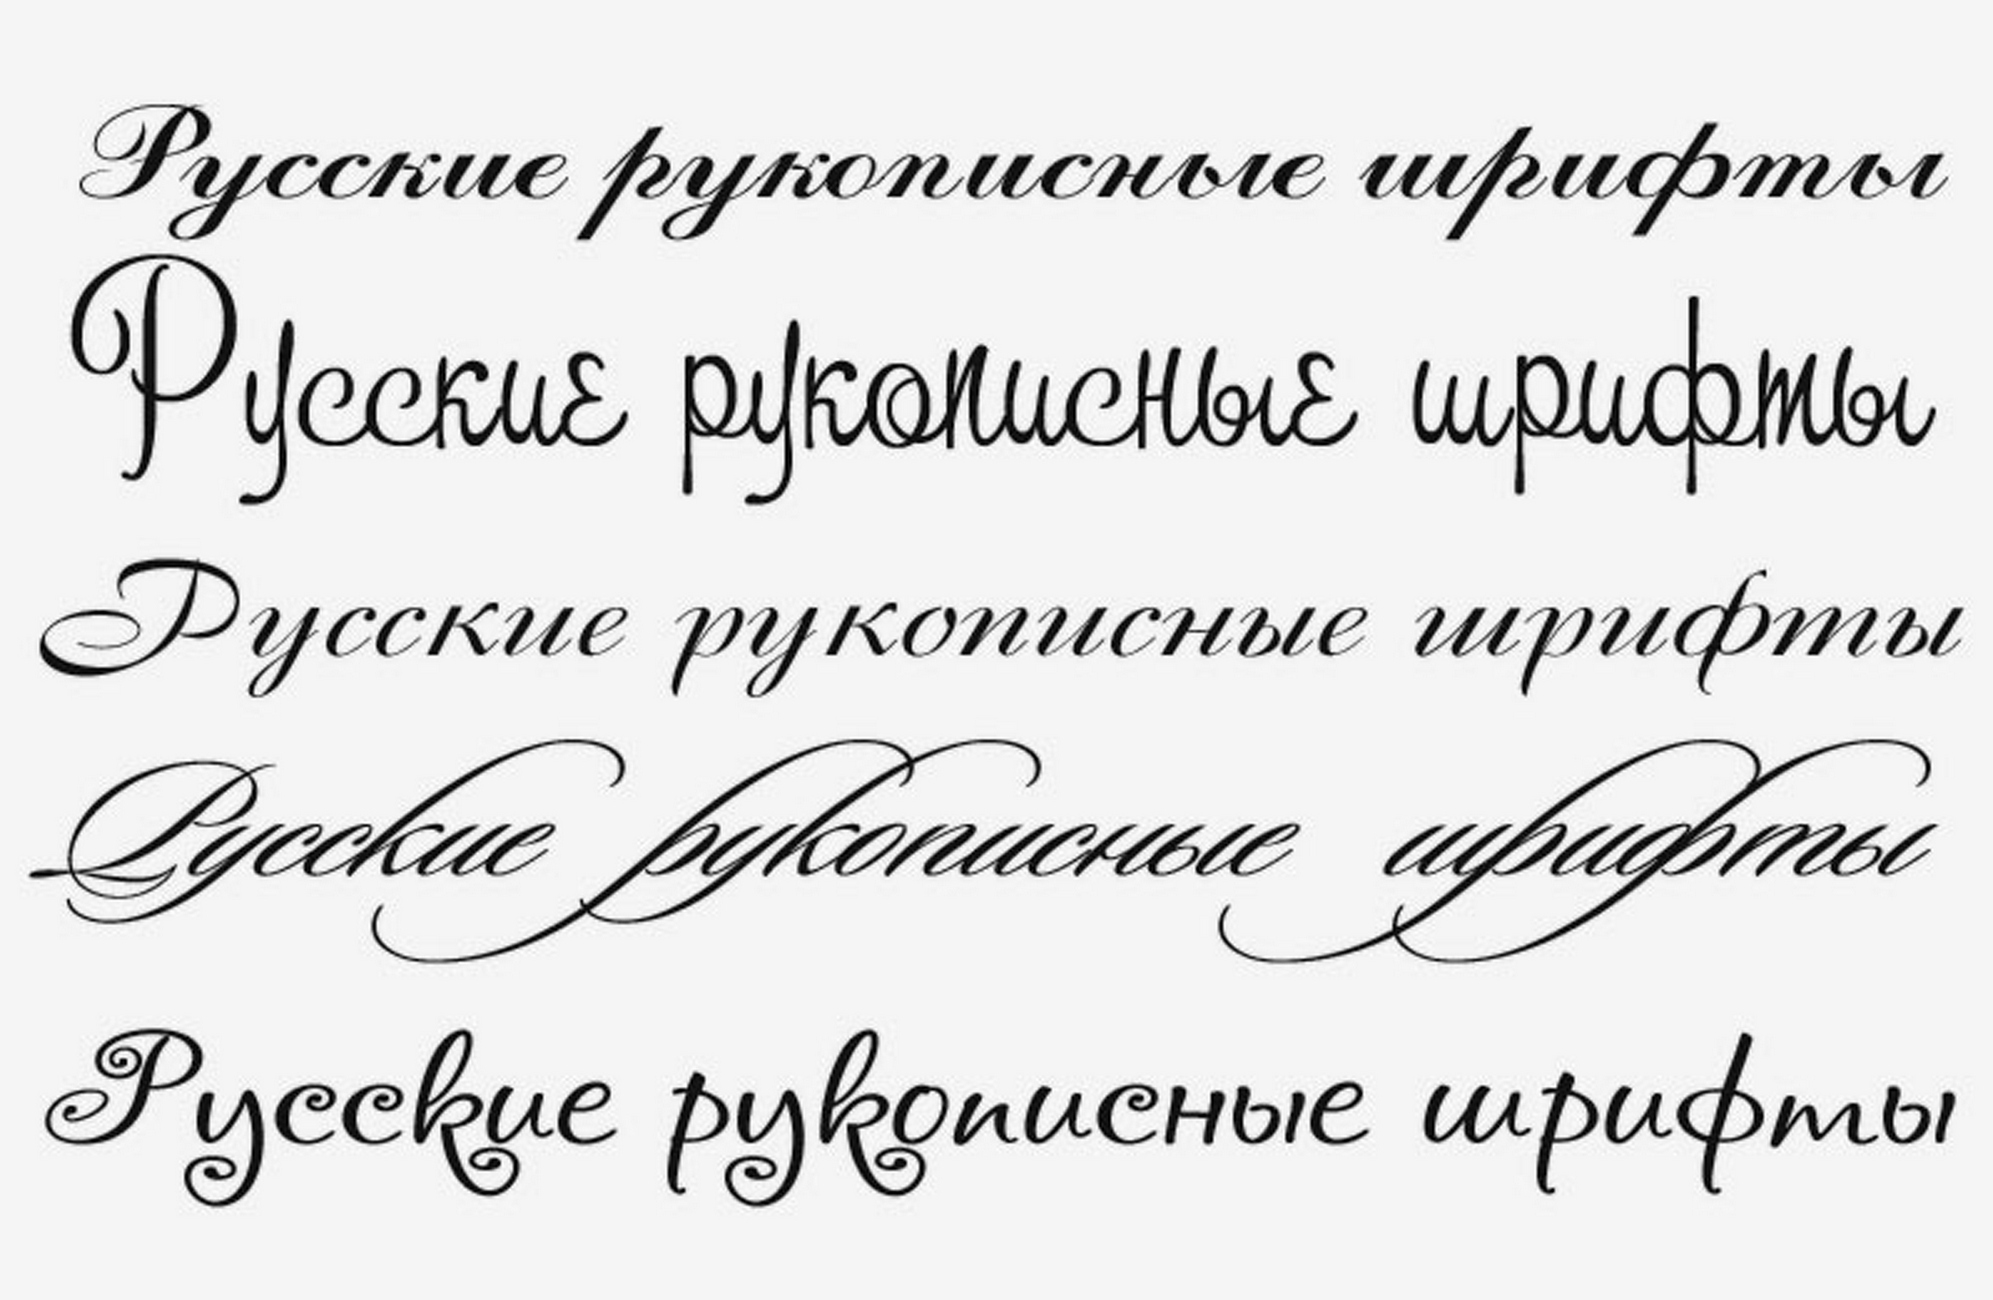 Русские рукописные шрифты
Русские рукописные шрифты
Русские рукописные шрифты
Русские рукописные шрифты
Русские рукописные шрифты